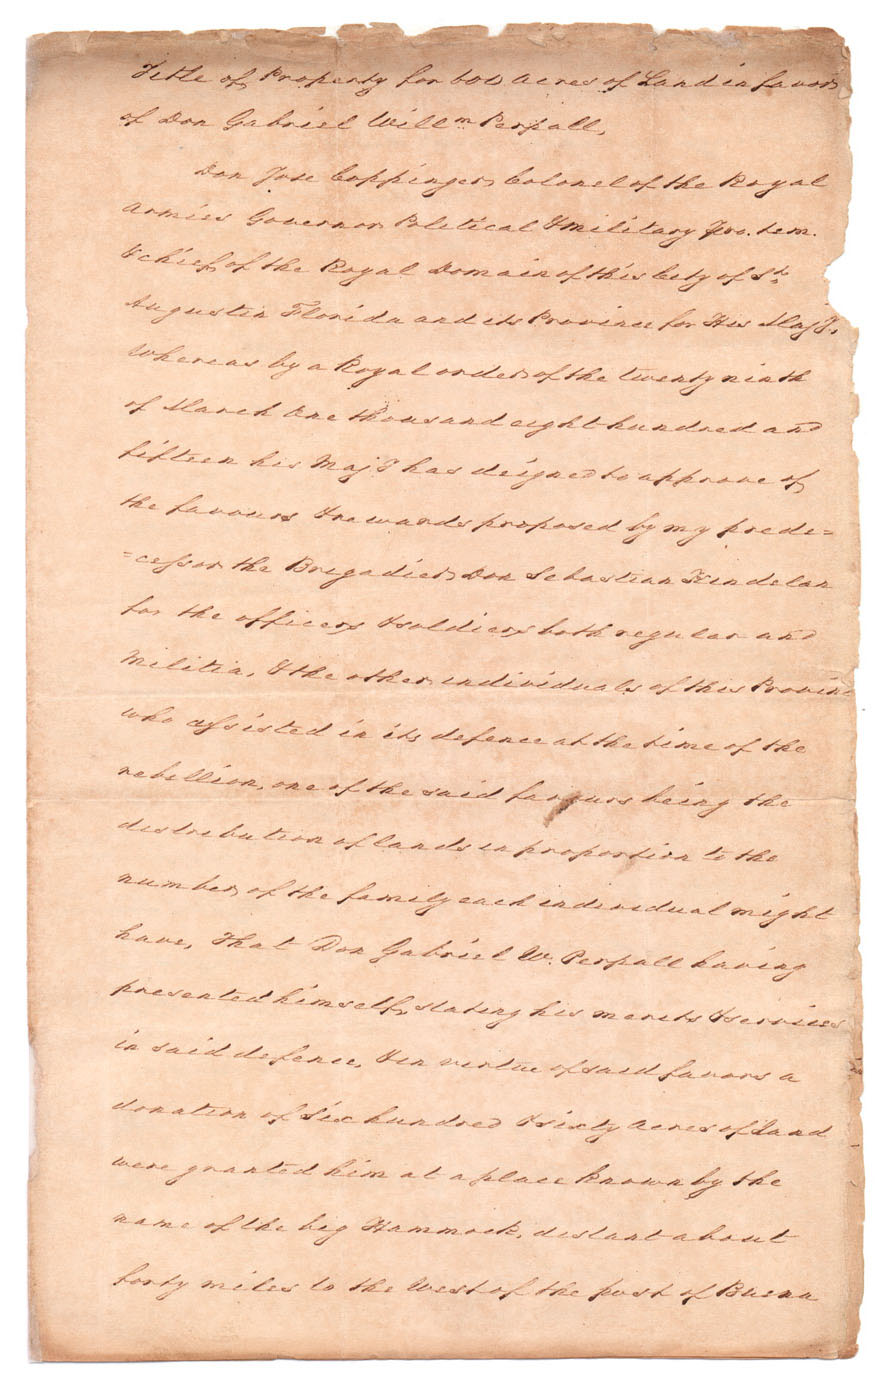 Title of Property for 600 acres of Land in favor
of Don Gabriel Willm Perpall,
Don Jose Coppinger, Colonel of the Royal
Armies Governor Political & military Pro. tem.
& chief of the Royal Domain of this City of St
Augustin Florida and its Province for His Majy.
Whereas by a Royal order of the twenty ninth
of March One thousand eight hundred and
fifteen his Majy has deigned to approve of
the favours & rewards proposed by my prede=
=cessor the Brigadier, Don Sebastian Kindelan
for the officers & soldiers both regular and
Militia, & the other individuals of this Province
who assisted in its defence at the time of the
rebellion, one of the said favours being the
distribution of lands in proportion to the
number of the family each individual might
have, That Don Gabriel W. Perpall having
presented himself, stating his merits & services
in said defence, & in virtue of said favors a
donation of Six hundred & sixty acres of Land
were granted him at a place known by the
name of the big Hammock, distant about
forty miles to the West of the post of Buena